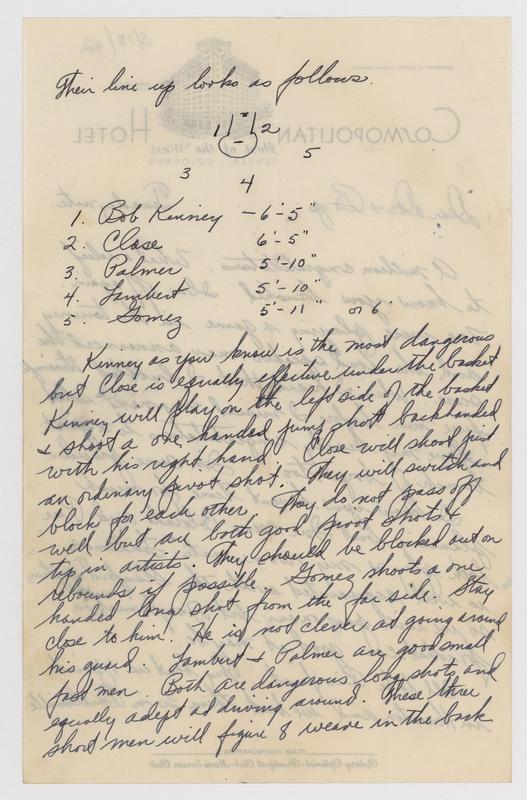 Their line up looks as follows.
1 2
5
3
4
1. Bob Kinney - 6'-5"
2. Close 6'-5"
3. Palmer 5'-10"
4. Lambert 5'-10"
5. Gomez 5'-11" or 6'
Kinney as you know is the most dangerous
but Close is equally effective under the basket
Kinney will play on the left side of the basket
& shoot a one handed jump shot backhanded
with his right hand. Close will shoot just
an ordinary pivot shot. They will switch and
block for each other. They do not pass off
well but are both good pivot shots &
tip in artists. They should be blocked out on
rebounds if possible. Gomez shoots a one
handed long shot from the far side. Stay
close to him. He is not clever at going around
his guard. Lambert & Palmer are good small
fast men. Both are dangerous long shots and
equally adept at driving around. These three
short men will figure 8 weave in the back
COSMOPOLITAN HOTEL